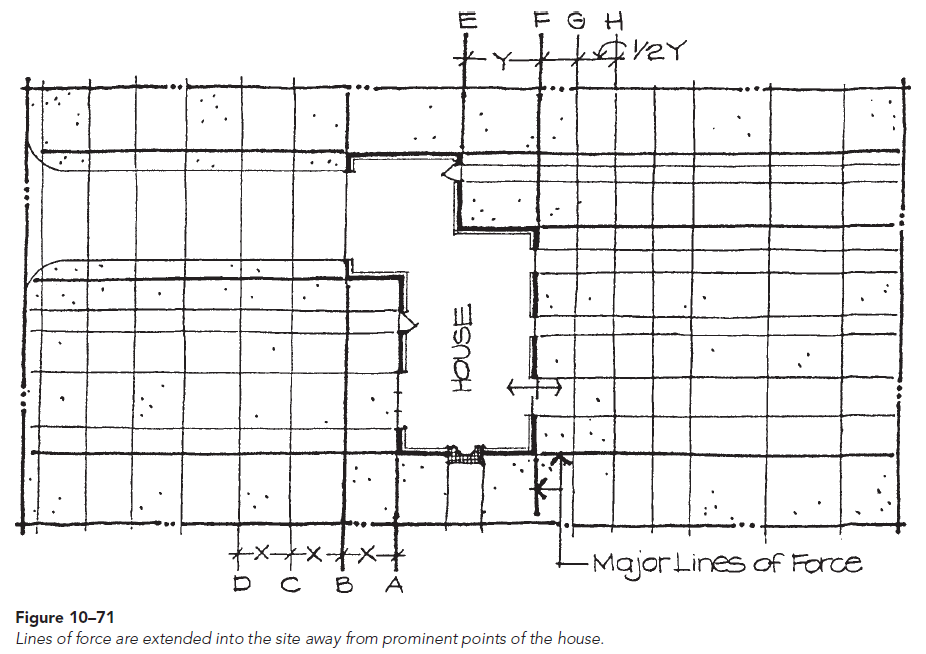 E F G H
Y 1/2Y
HOUSE
X X X
D C B A
Major Lines of Force
Figure 10–71
Lines of force are extended into the site away from prominent points of the house.